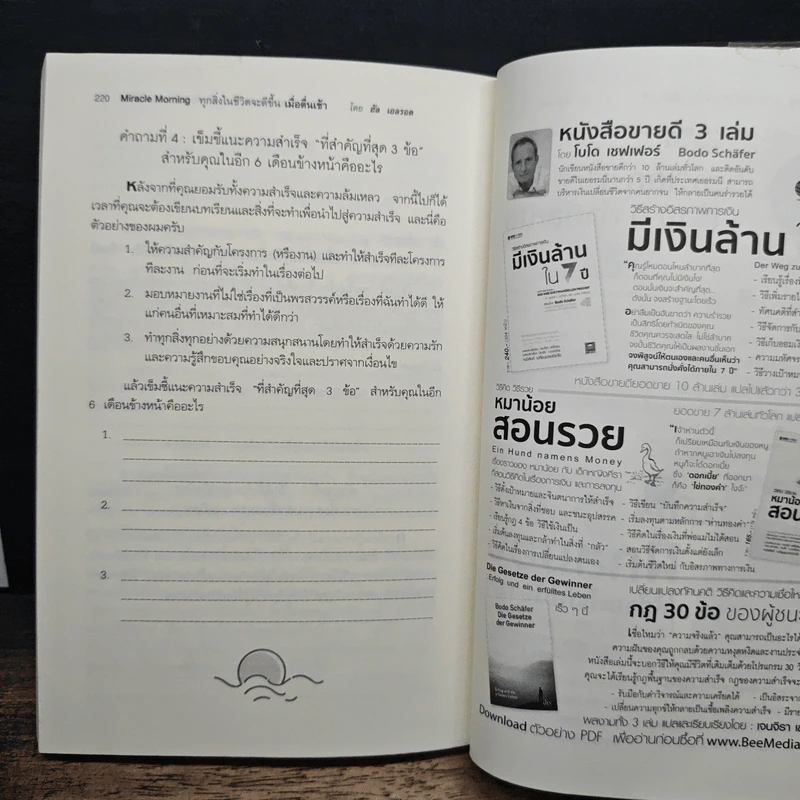 220 Miracle Morning ทุกสิ่งในชีวิตจะดีขึ้น เมื่อตื่นเช้า โดย ฮัล เอลรอด
คำถามที่ 4 : เข็มชี้แนะความสำเร็จ "ที่สำคัญที่สุด 3 ข้อ"
สำหรับคุณในอีก 6 เดือนข้างหน้าคืออะไร
หลังจากที่คุณยอมรับทั้งความสำเร็จและความล้มเหลว จากนี้ไปก็ได้
เวลาที่คุณจะต้องเขียนบทเรียนและสิ่งที่จะทำเพื่อนำไปสู่ความสำเร็จ และนี่คือ
ตัวอย่างของผมครับ
1. ให้ความสำคัญกับโครงการ (หรืองาน) และทำให้สำเร็จทีละโครงการ
ทีละงาน ก่อนที่จะเริ่มทำในเรื่องต่อไป
2. มอบหมายงานที่ไม่ใช่เรื่องที่เป็นพรสวรรค์หรือเรื่องที่ฉันทำได้ดี ให้
แก่คนอื่นที่เหมาะสมที่ทำได้ดีกว่า
3. ทำทุกสิ่งทุกอย่างด้วยความสนุกสนานโดยทำให้สำเร็จด้วยความรัก
และความรู้สึกขอบคุณอย่างจริงใจและปราศจากเงื่อนไข
แล้วเข็มชี้แนะความสำเร็จ "ที่สำคัญที่สุด 3 ข้อ" สำหรับคุณในอีก
6 เดือนข้างหน้าคืออะไร
1.
2.
3.
หนังสือขายดี 3 เล่ม
โดย โบโด เชฟเฟอร์ Bodo Schäfer
นักเขียนหนังสือขายดีกว่า 10 ล้านเล่มทั่วโลก และติดอันดับ
ขายดีในเยอรมนีนานกว่า 5 ปี เกิดที่ประเทศเยอรมนี สามารถ
บริหารเงินเปลี่ยนชีวิตจากคนยากจน ให้กลายเป็นคนร่ำรวยได้
วิธีสร้างอิสรภาพการเงิน
มีเงินล้าน
มีเงินล้าน
ใน 7 ปี
Bodo Schäfer
240.-
"คุณรู้ไหมตอนไหนลำบากที่สุด
ก็ตอนที่คุณไม่มีเงินไง!
ตอนนั้นเงินจะสำคัญที่สุด...
ดังนั้น จงสร้างฐานะโดยเร็ว
อย่าลืมเป็นอันขาดว่า ความร่ำรวย
เป็นสิทธิโดยกำเนิดของคุณ
จงพิสูจน์ให้ตนเองและคนอื่นเห็นว่า
คุณสามารถมั่งคั่งได้ภายใน 7 ปี"
Der Weg zu
- เรียนรู้เรื่อง
- วิธีเพิ่มราย
- ทัศนคติที่ส
- วิธีจัดการกับ
- วิธีเก็บออมเงิน
- ความมหัศจร
- วิธีวางเป้าหม
หนังสือขายดียอดขาย 10 ล้านเล่ม แปลไปแล้วกว่า 3
วิธีคิด วิธีรวย
หมาน้อย
สอนรวย
Ein Hund namens Money
เรื่องราวของ หมาน้อย กับ เด็กหญิงคีร่า
ที่สอนวิธีคิดในเรื่องการเงิน และการลงทุน
- วิธีตั้งเป้าหมายและจินตนาการให้สำเร็จ
- วิธีหาเงินจากสิ่งที่ชอบ และชนะอุปสรรค
- เรียนรู้กฎ 4 ข้อ วิธีใช้เงินเป็น
- เริ่มต้นลงทุนและกล้าทำในสิ่งที่ "กลัว"
- วิธีคิดในเรื่องการเปลี่ยนแปลงตนเอง
ยอดขาย 7 ล้านเล่มทั่วโลก แปล
"เจ้าห่านตัวนี้
ก็เปรียบเหมือนกับเงินของหนู
ถ้าหากหนูเอาเงินไปลงทุน
หนูก็จะได้ดอกเบี้ย
ซึ่ง 'ดอกเบี้ย' ที่ออกมา
ก็คือ 'ไข่ทองคำ' ไงจ๊ะ"
- วิธีเขียน "บันทึกความสำเร็จ"
- เริ่มลงทุนตามหลักการ "ห่านทองคำ"
- วิธีคิดในเรื่องเงินที่พ่อแม่ไม่ได้สอน
- สอนวิธีจัดการเงินตั้งแต่ยังเล็ก
- เริ่มต้นชีวิตใหม่ กับอิสรภาพทางการเงิน
หมาน้อย
สอนรวย
Die Gesetze der Gewinner
Erfolg und ein erfülltes Leben
Bodo Schäfer
Die Gesetze
der Gewinner
เร็ว ๆ นี้
เปลี่ยนแปลงทัศนคติ วิธีคิดและความเชื่อให
กฎ 30 ข้อ ของผู้ชนะ
เชื่อไหมว่า "ความจริงแล้ว" คุณสามารถเป็นอะไรได้
ความฝันของคุณถูกกลบด้วยความหงุดหงิดและงานประจำ
หนังสือเล่มนี้จะบอกวิธีให้คุณมีชีวิตที่เติมเต็มด้วยโปรแกรม 30 วั
คุณจะได้เรียนรู้กฎพื้นฐานของความสำเร็จ กฎของความสำเร็จจะ
- รับมือกับคำวิจารณ์และความเครียดได้ - เป็นอิสระจาก
- เปลี่ยนความทุกข์ให้กลายเป็นเชื้อเพลิงความสำเร็จ - มีราย
ผลงานทั้ง 3 เล่ม แปลและเรียบเรียงโดย : เจนจิรา เส
Download ตัวอย่าง PDF เพื่ออ่านก่อนซื้อที่ www.BeeMedia